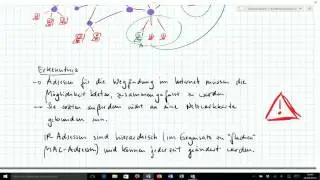 Erkenntnis
• Adressen für die Wegfindung im Internet müssen die
Möglichkeit bieten, zusammengefasst zu werden.
• Sie dürfen außerdem nicht an eine Netzwerkkarte
gebunden sein.
IP Adressen sind hierarchisch (im Gegensatz zu "flachen"
MAC-Adressen) und können jederzeit geändert werden.